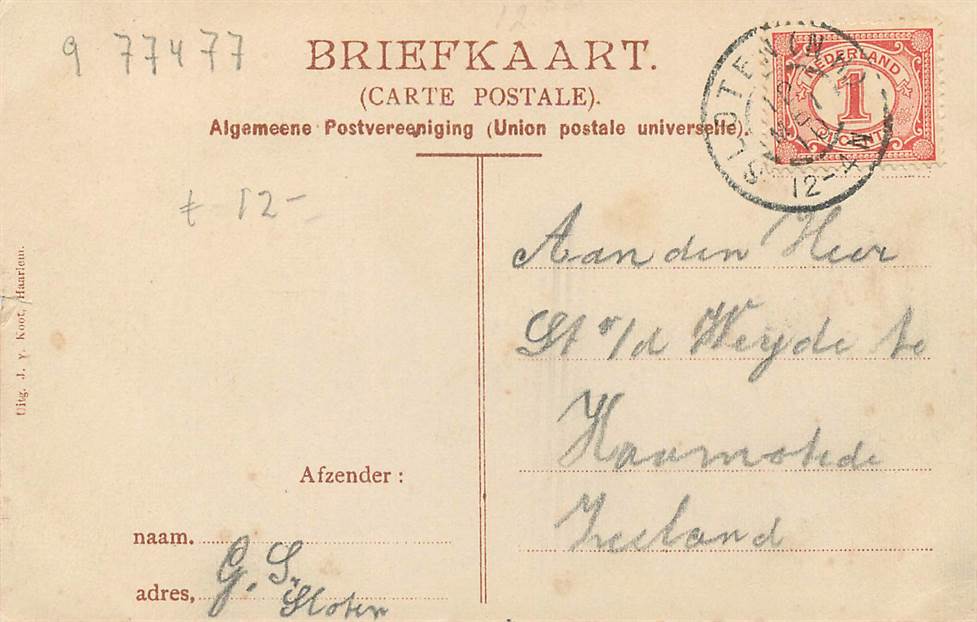 9 77477
BRIEFKAART.
(CARTE POSTALE).
Algemeene Postvereeniging (Union postale universelle).
NEDERLAND
1
CENT
SLOTEN (N.H.)
12-4N
ƒ 12-
Aan den Heer
St v/d Weyde te
Haamstede
Zeeland
Uitg. J. v. Koot, Haarlem.
Afzender:
naam.
G. S.
adres,
Sloten